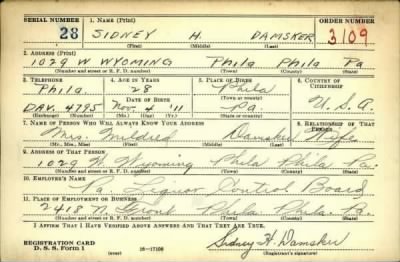 SERIAL NUMBER 1. NAME (Print) ORDER NUMBER
28 SIDNEY H. DAMSKER 3109
(First) (Middle) (Last)
2. ADDRESS (Print)
1029 W WYOMING Phila Phila Pa
(Number and street or R. F. D. number) (Town) (County) (State)
3. TELEPHONE 4. AGE IN YEARS 5. PLACE OF BIRTH 6. COUNTRY OF CITIZENSHIP
Phila. 28 Phila
DATE OF BIRTH (Town or county)
DAV. 4795 Nov. 4 '11 Pa. U.S.A.
(Exchange) (Number) (Mo.) (Day) (Yr.) (State or country)
7. NAME OF PERSON WHO WILL ALWAYS KNOW YOUR ADDRESS 8. RELATIONSHIP OF THAT PERSON
Mrs. Mildred Damsker Wife
(Mr., Mrs., Miss) (First) (Middle) (Last)
9. ADDRESS OF THAT PERSON
1029 W. Wyoming Phila Phila. Pa.
(Number and street or R. F. D. number) (Town) (County) (State)
10. EMPLOYER'S NAME
Pa. Liquor Control Board
11. PLACE OF EMPLOYMENT OR BUSINESS
2418 N. Front Phila Phila. Pa.
(Number and street or R. F. D. number) (Town) (County) (State)
I AFFIRM THAT I HAVE VERIFIED ABOVE ANSWERS AND THAT THEY ARE TRUE.
REGISTRATION CARD
D. S. S. Form 1 16-17105 Sidney H. Damsker
(Registrant's signature)